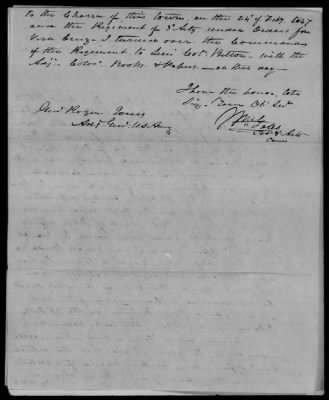 to the Charge of this town, on the 24th of Feby. 1847
and the Regiment of 3d Arty under Orders for
Vera Cruz, I turned over the Command
of the Regiment to Lieut Col. Belton. with the
Adj. Books & Papers — on this day
I have the honor, to be
Sir, Your Obt Sert
Genl Roger Jones
Adjt Genl. U.S. Army
Wm Gates
Col. 3 Arty